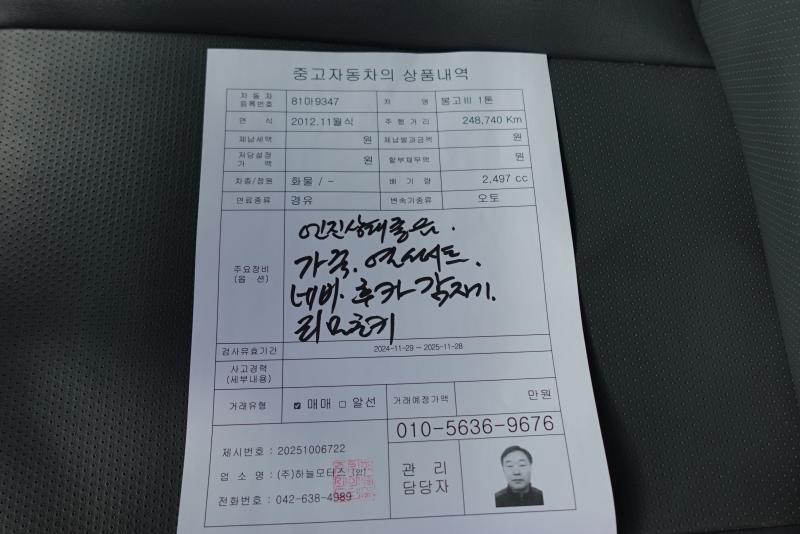 중고자동차의 상품내역
자동차 등록번호 81마9347 차 명 봉고Ⅲ 1톤
연 식 2012.11월식 주행거리 248,740 Km
체납세액 원 체납벌과금액 원
저당설정 가 액 원 할부채무액 원
차종/정원 화물 / - 배 기 량 2,497 cc
연료종류 경유 변속기종류 오토
주요장비 (옵 션)
엔진상태좋음.
가죽. 열선시트.
네비. 후카 감지기.
리모콘키
검사유효기간 2024-11-29 ~ 2025-11-28
사고경력 (세부내용)
거래유형 ☑ 매매 □ 알선 거래예정가액 만원
010-5636-9676
제시번호 : 20251006722
업 소 명 : (주)하늘모터스 (인)
전화번호 : 042-638-4989
관 리
담당자